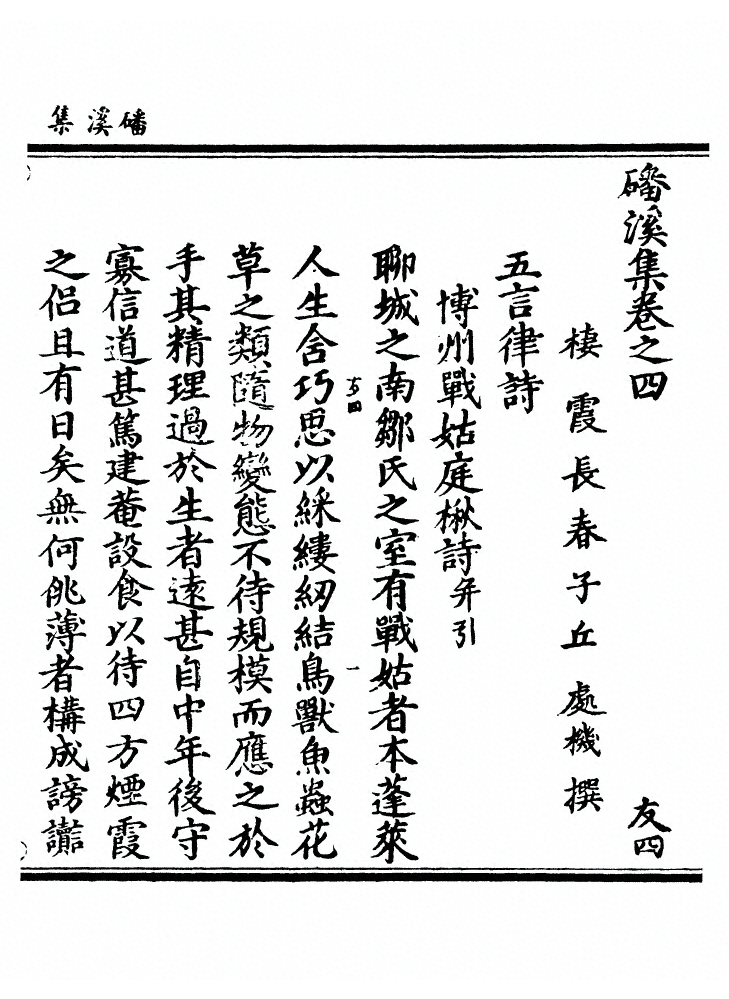 磻溪集
磻溪集卷之四
友四
棲霞長春子丘處機撰
五言律詩
博州戰姑庭楸詩并引
聊城之南鄒氏之室有戰姑者本蓬萊
友四
一
人生含巧思以綵縷紉結鳥獸魚蟲花
草之類隨物變態不待規模而應之於
手其精理過於生者遠甚自中年後守
寡信道甚篤建菴設食以待四方煙霞
之侶且有日矣無何佻薄者構成謗讟